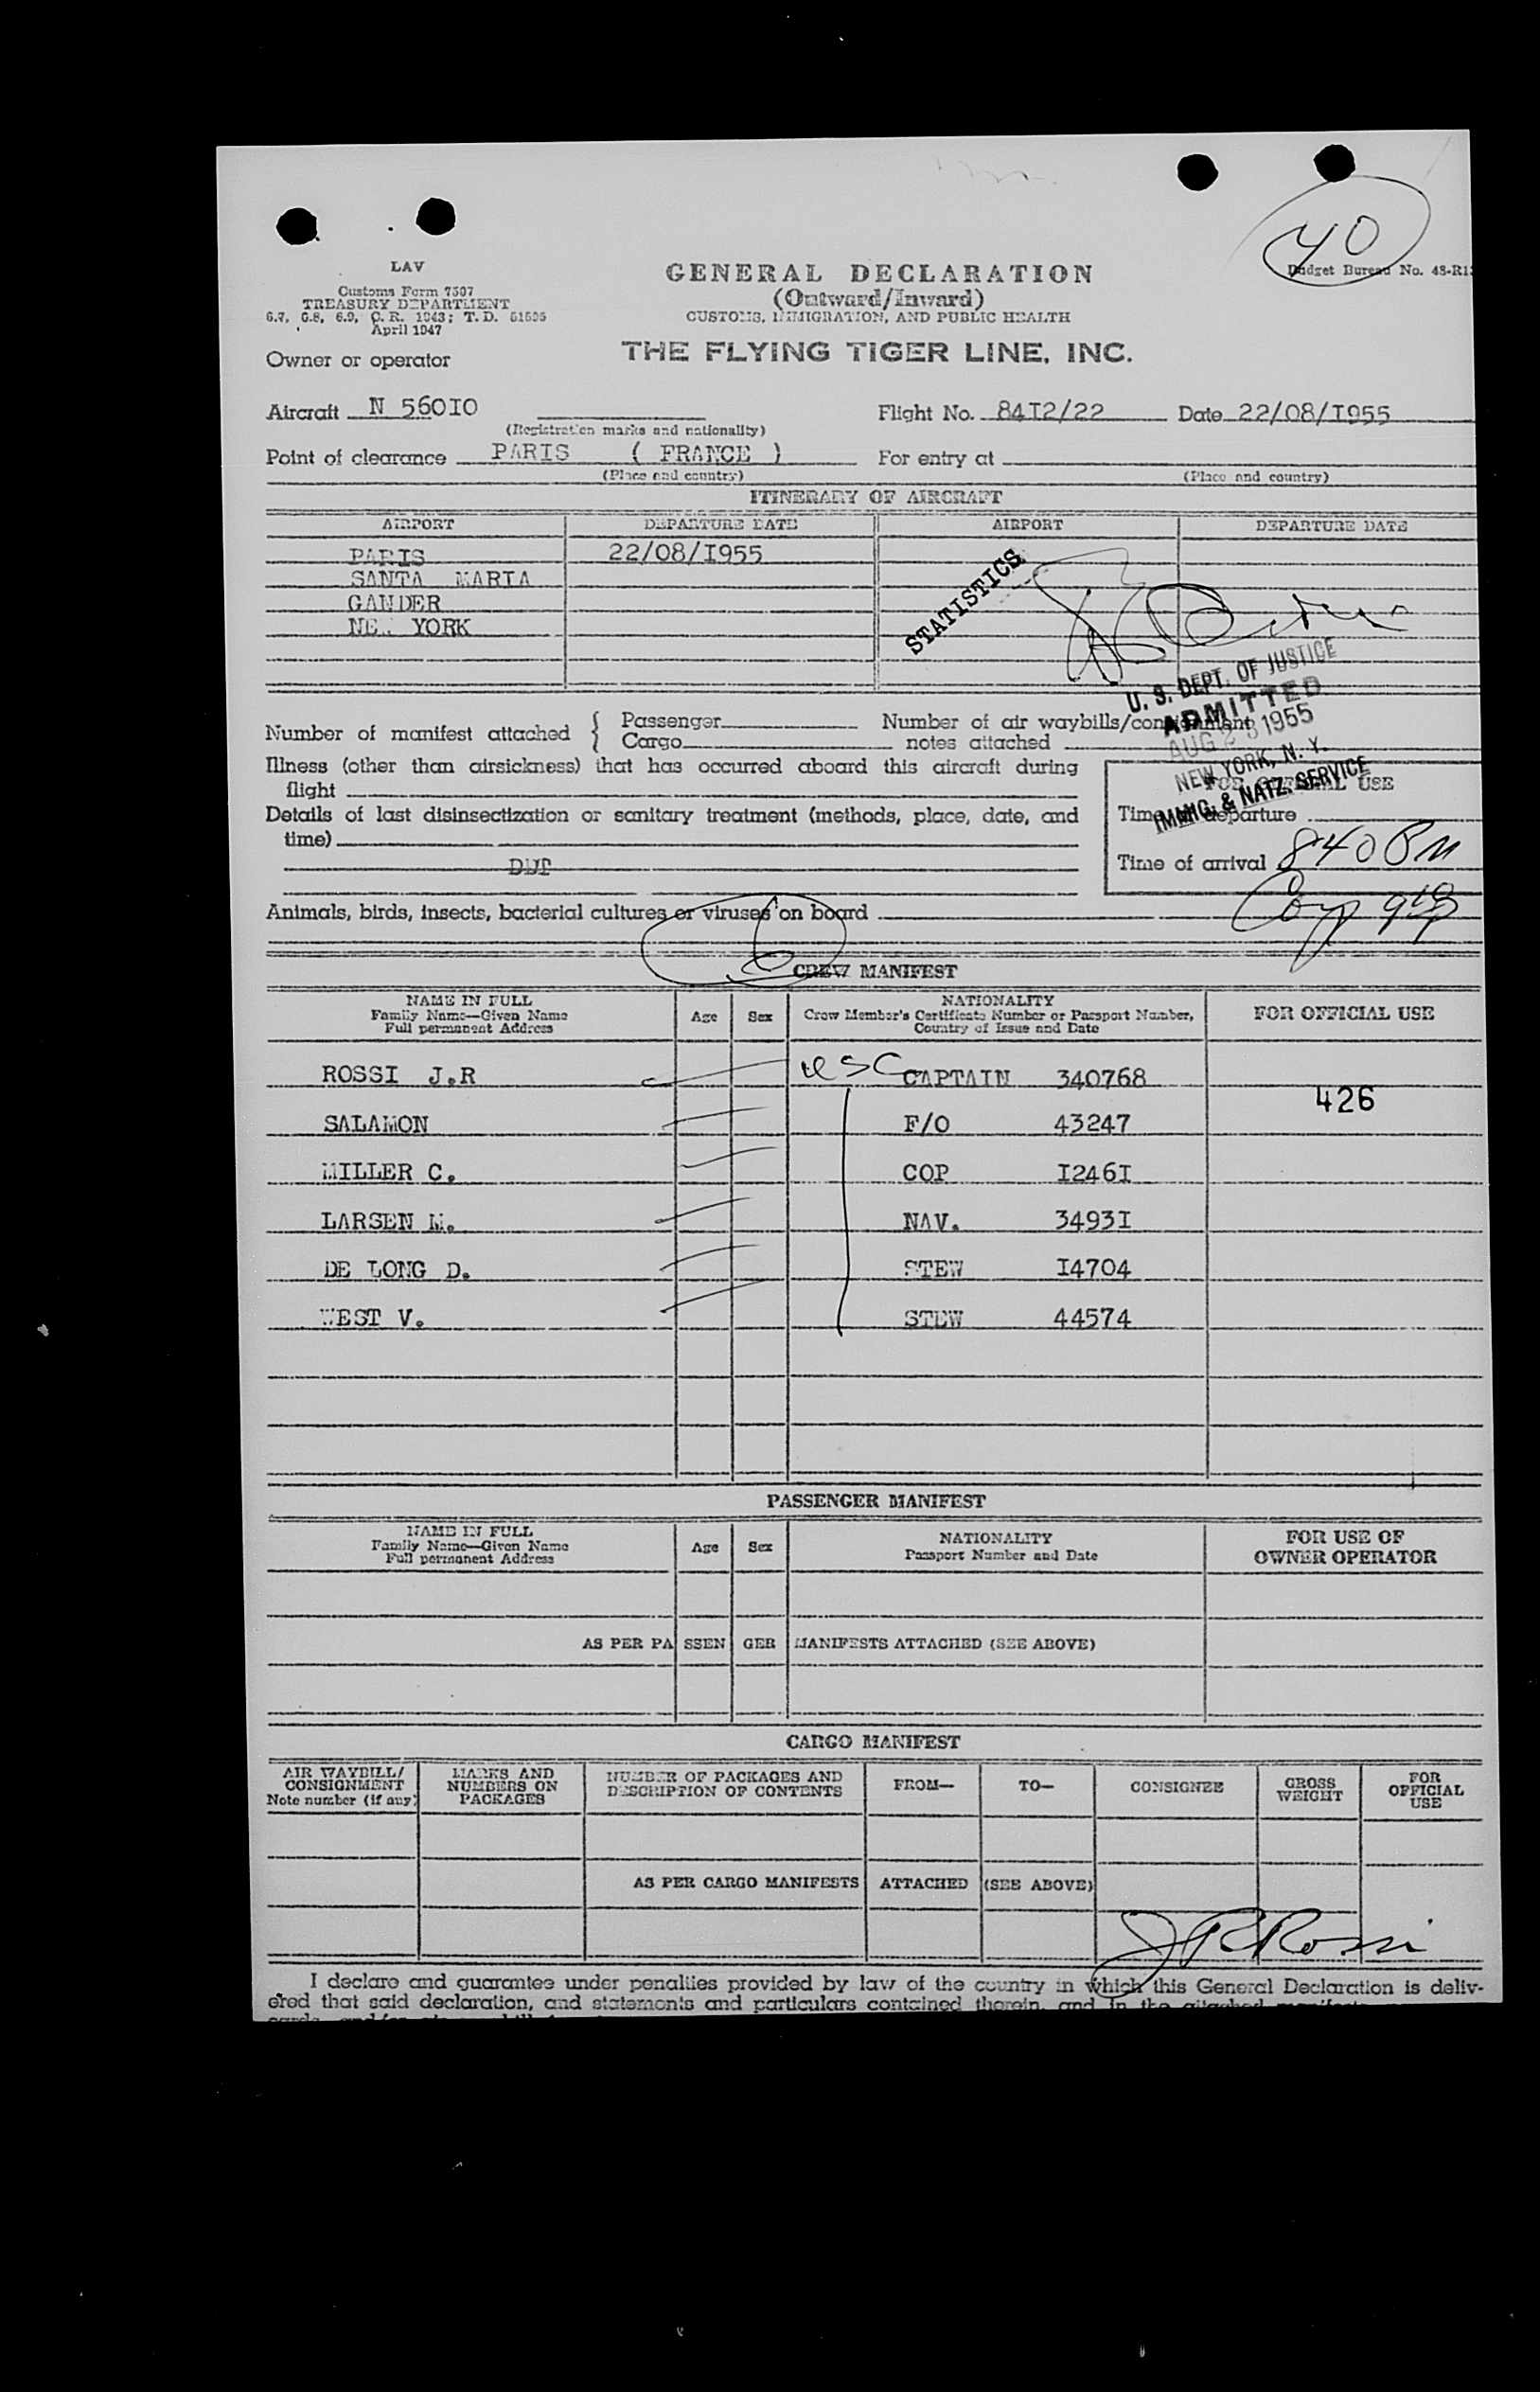 40
LAV
Customs Form 7507
TREASURY DEPARTMENT
6.7, 6.8, 6.9, C. R. 1943; T. D. 51595
April 1947
GENERAL DECLARATION
(Outward/Inward)
CUSTOMS, IMMIGRATION, AND PUBLIC HEALTH
Budget Bureau No. 48-R1
Owner or operator
THE FLYING TIGER LINE, INC.
Aircraft N 56OIO Flight No. 84I2/22 Date 22/08/I955
(Registration marks and nationality)
Point of clearance PARIS ( FRANCE ) For entry at
(Place and country) (Place and country)
ITINERARY OF AIRCRAFT
AIRPORT DEPARTURE DATE AIRPORT DEPARTURE DATE
PARIS 22/08/I955
SANTA MARIA
GANDER
NEW YORK
STATISTICS
U. S. DEPT. OF JUSTICE
ADMITTED
AUG 1955
NEW YORK, N. Y.
IMMIG. & NATZ. SERVICE
Number of manifest attached { Passenger Number of air waybills/consignment
Cargo notes attached
Illness (other than airsickness) that has occurred aboard this aircraft during
flight
FOR OFFICIAL USE
Details of last disinsectization or sanitary treatment (methods, place, date, and
time)
Time of departure
DDT
Time of arrival 840 PM
Animals, birds, insects, bacterial cultures or viruses on board
6
CREW MANIFEST
NAME IN FULL
Family Name—Given Name
Full permanent Address
Age Sex
NATIONALITY
Crew Member's Certificate Number or Passport Number,
Country of Issue and Date
FOR OFFICIAL USE
ROSSI J.R USC CAPTAIN 340768
426
SALAMON F/O 43247
MILLER C. COP I246I
LARSEN M. NAV. 3493I
DE LONG D. STEW I4704
WEST V. STEW 44574
PASSENGER MANIFEST
NAME IN FULL
Family Name—Given Name
Full permanent Address
Age Sex
NATIONALITY
Passport Number and Date
FOR USE OF
OWNER OPERATOR
AS PER PASSENGER MANIFESTS ATTACHED (SEE ABOVE)
CARGO MANIFEST
AIR WAYBILL/
CONSIGNMENT
Note number (if any)
MARKS AND
NUMBERS ON
PACKAGES
NUMBER OF PACKAGES AND
DESCRIPTION OF CONTENTS
FROM—
TO—
CONSIGNEE
GROSS
WEIGHT
FOR
OFFICIAL
USE
AS PER CARGO MANIFESTS ATTACHED (SEE ABOVE)
J R Rossi
I declare and guarantee under penalties provided by law of the country in which this General Declaration is deliv-
ered that said declaration, and statements and particulars contained therein, and in the attached